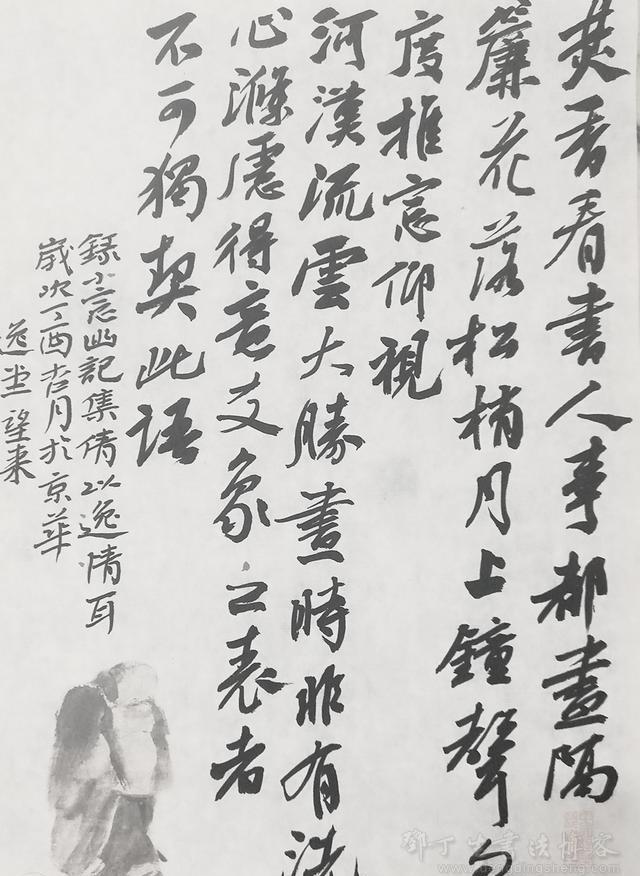 焚香看書人事都盡隔
簾花落松梢月上鐘聲
度推窓仰視
河漢流雲大勝晝時非有洗
心滌慮得意爻象之表者
不可獨契此語
錄小窓幽記集倩以逸情耳
歲次丁酉杏月於京華
鄧丁生書法博客
www.dengdingsheng.com